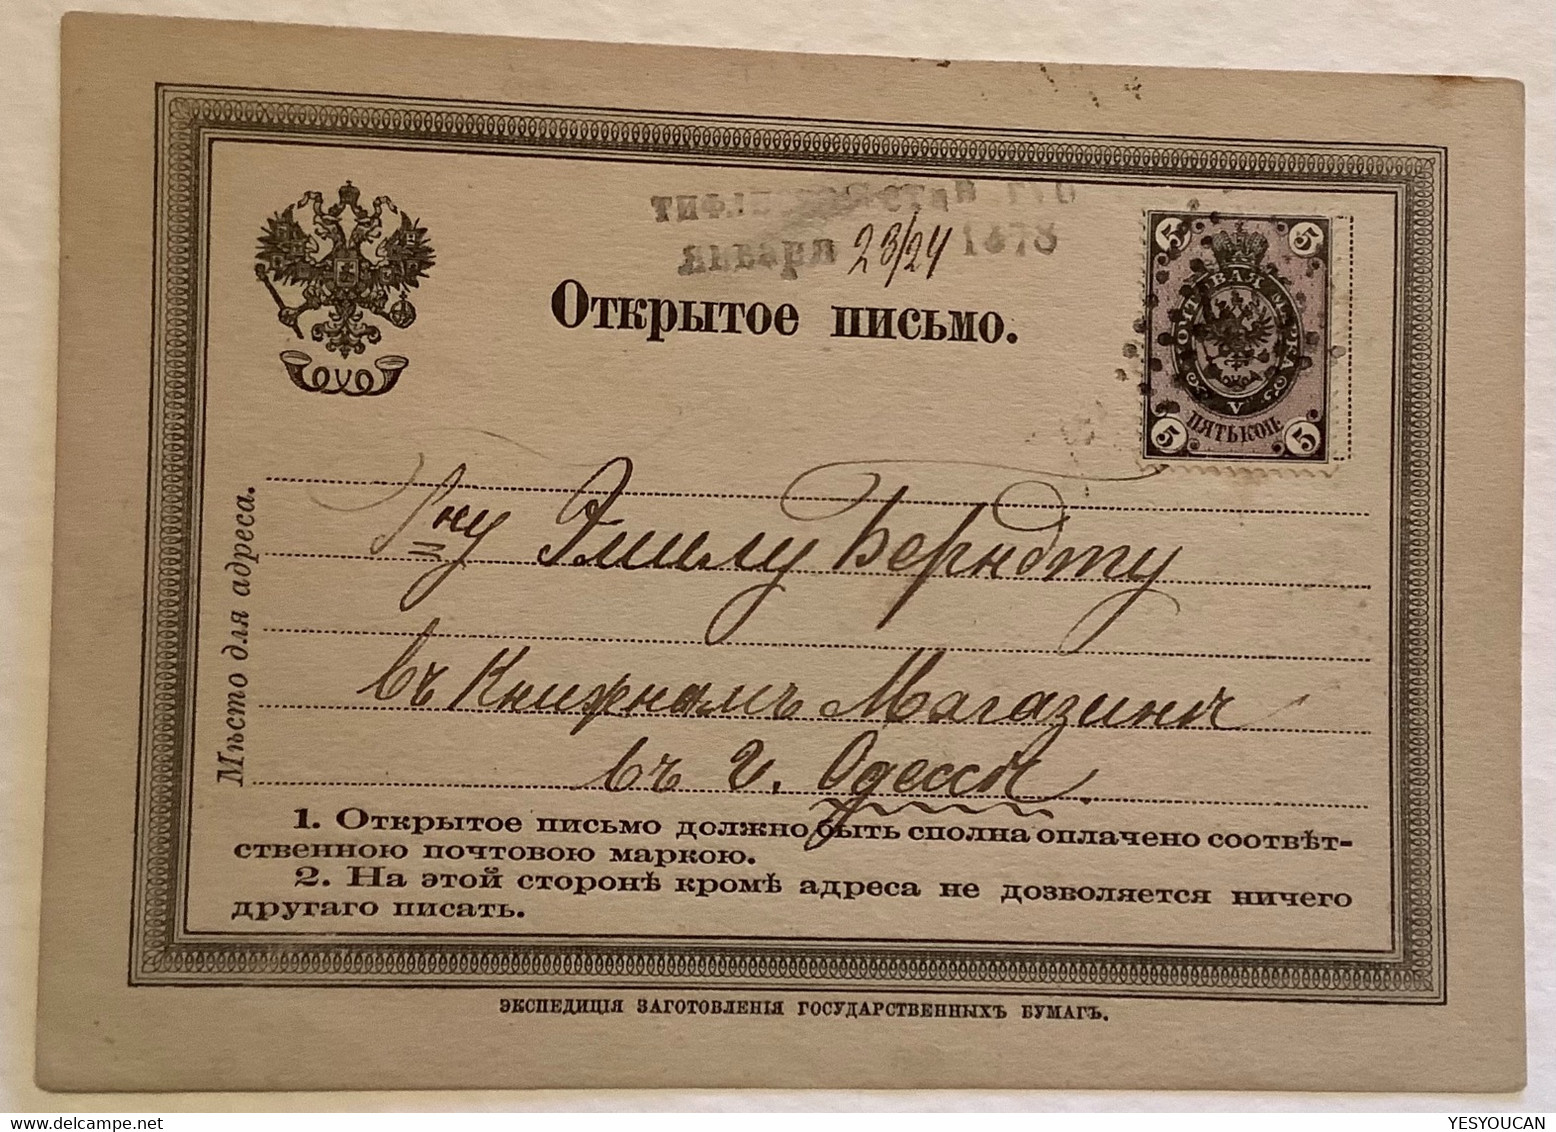 января 23/24 1878
Открытое письмо.
5 5
ПОЧТОВАЯ МАРКА
V
ПЯТЬ КОП.
5 5
Мѣсто для адреса.
Гну Эмилу Берндту
въ Книжномъ Магазинѣ
въ г. Одессѣ.
1. Открытое письмо должно быть сполна оплачено соотвѣт-
ственною почтовою маркою.
2. На этой сторонѣ кромѣ адреса не дозволяется ничего
другаго писать.
ЭКСПЕДИЦІЯ ЗАГОТОВЛЕНІЯ ГОСУДАРСТВЕННЫХЪ БУМАГЪ.
YESYOUCAN